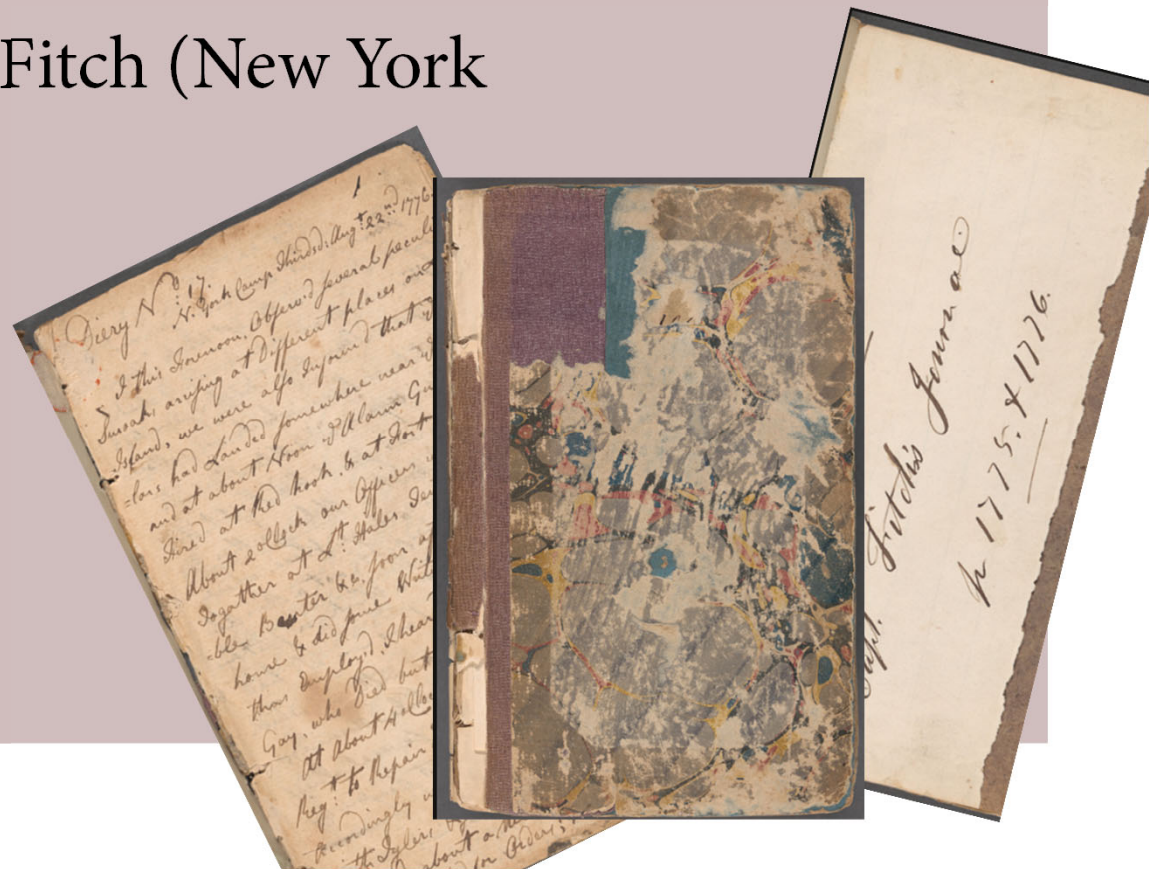 Fitch (New York
1
Diery No 17.
N. York Camp Thirsd: Augt 22nd 1776
I this Forenoon, Observ'd several pecul
Smoak, arising at Different places on
Island, we were also Inform'd that
-lars had Landed somewhere near
and at about Noon Alarm Gu
Fired at Red hook. & at Fort
About 2 oClock our Officers
Togather at Lt Hales
-ble Banter &c. soon a
home & did some Writ
thus Employ'd, I hear
Gay, who Died but
At about 4 oCloc
Regt to Repair
accordingly
about a
for Orders;
Capt. Fitch's Journal
in 1775. & 1776.